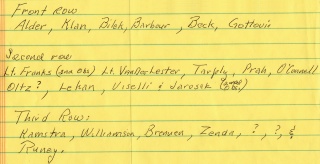 Front Row
Alder, Klan, Bilek, Barbour, Beck, Gottovi
Second row
Lt. Franks (and Obs) Lt. VanDorLester, Tarjely, Prah, O'Connell
Oltz?, Lehan, Viselli & Jarosek
Third Row:
Hamstra, Williamson, Brennen, Zenda, ?, ?, &
Runey.